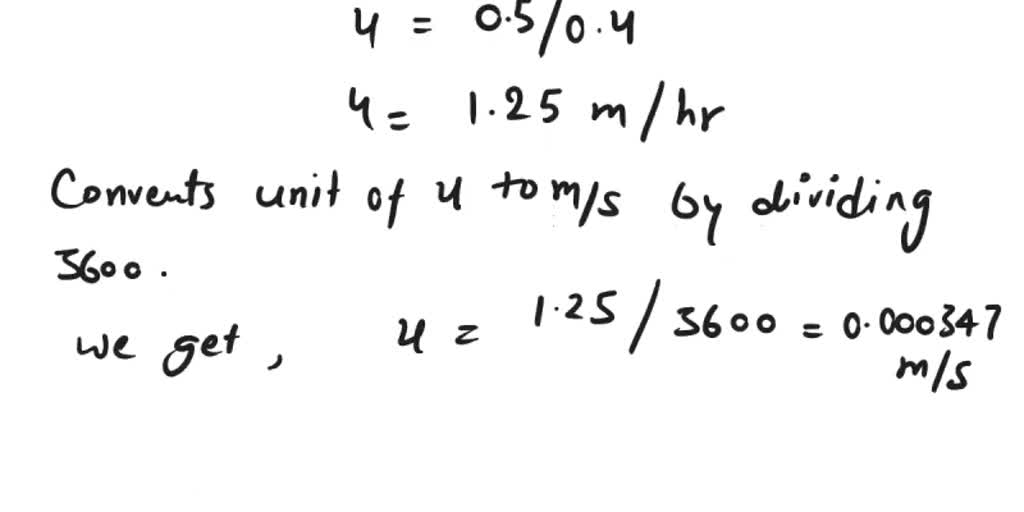 u = 0.5/0.4
u = 1.25 m/hr
Convents unit of u to m/s by dividing
3600.
we get, u = 1.25/3600 = 0.000347
m/s